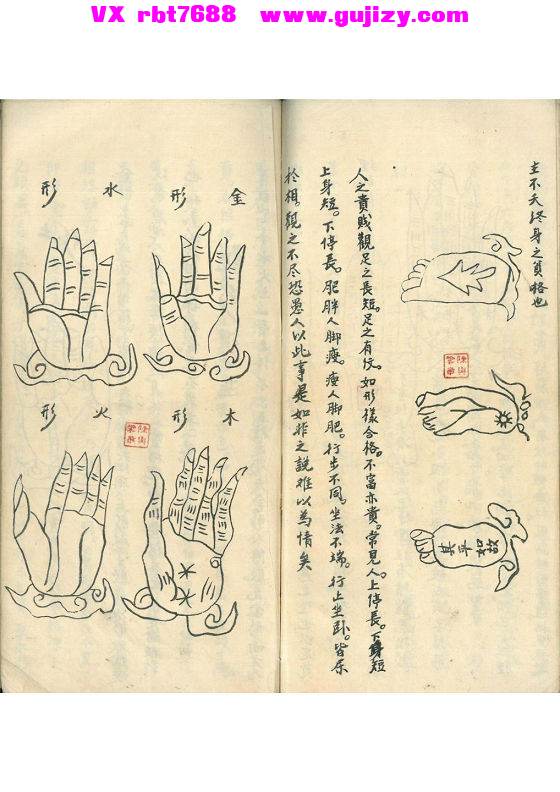 VX rbt7688 www.gujizy.com
主不夭終身之貧格也
故如平其
人之貴賤觀足之長短。足之有伩。如形樣合格。不富亦貴。常見人。上停長。下身短
上身短。下停長。肥胖人脚瘦。瘦人脚肥。行步不同。坐法不端。行止坐臥。皆屬
於相。觀之不尽恐愚人以此事是如非之說難以為情矣
金形
水形
木形
火形